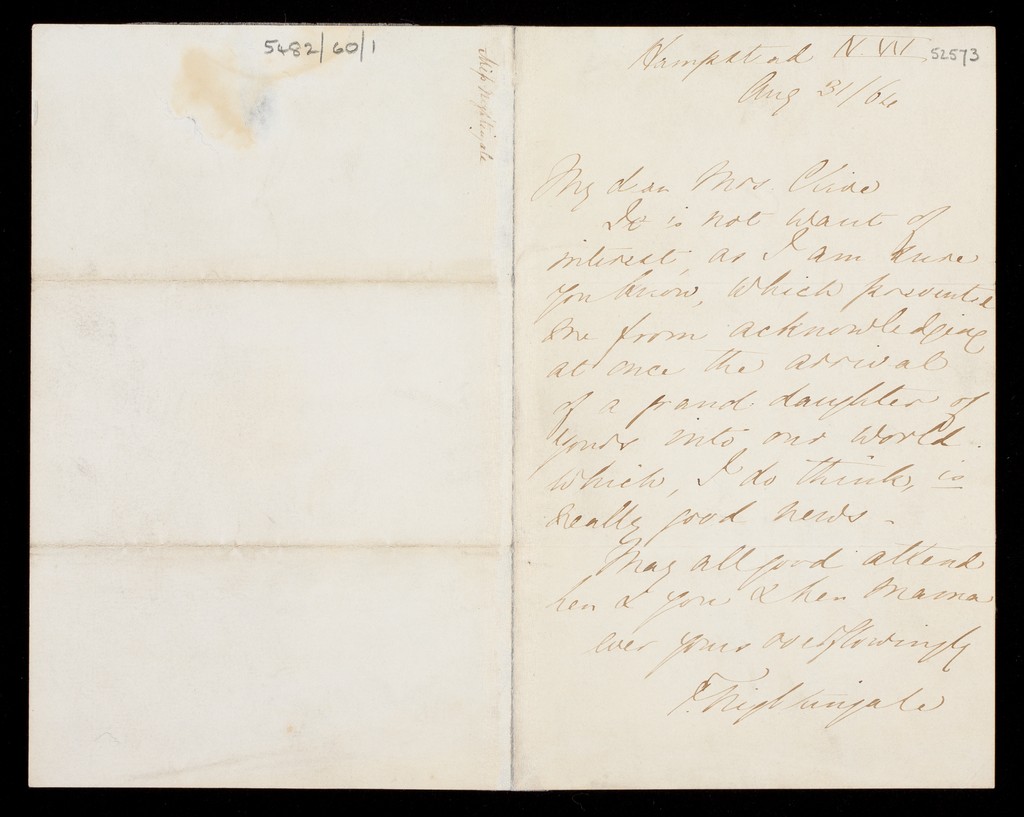 5482/60/1
Miss Nightingale
Hampstead N.W.
52573
Aug 31/64
My dear Mrs. Clive
It is not want of
interest, as I am sure
you know, which prevented
me from acknowledging
at once the arrival
of a grand-daughter of
yours into our world.
which, I do think, is
really good news.
May all good attend
her & you & her Mama
ever yours overflowingly
F. Nightingale